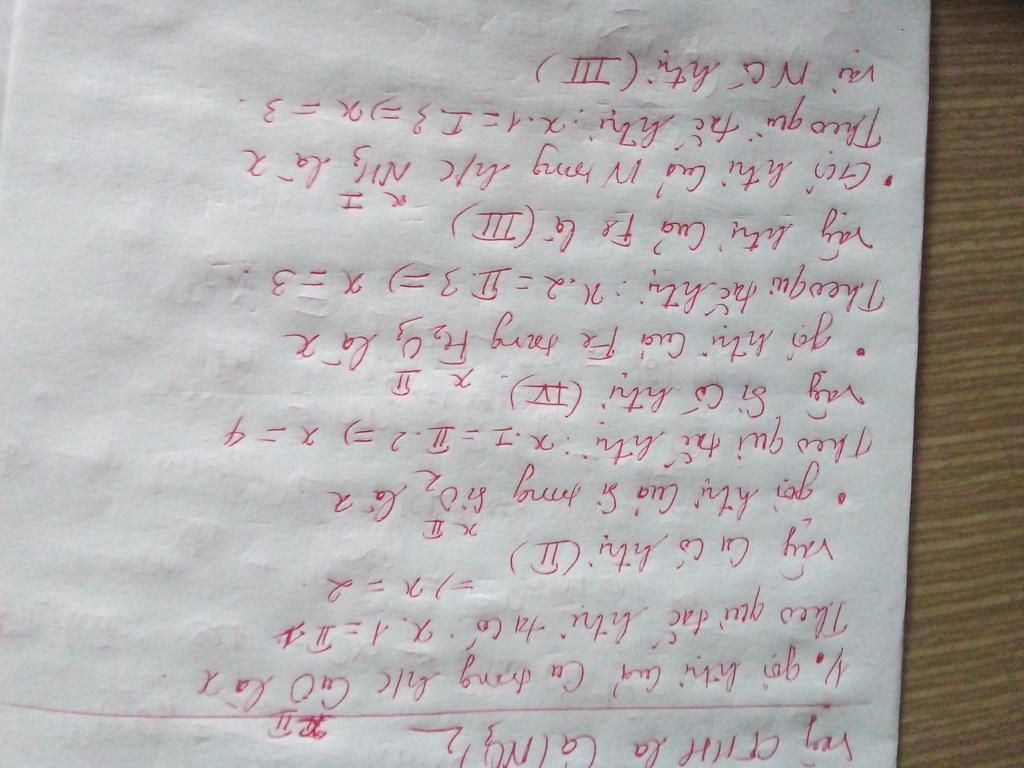 Vậy CTHH là Ca(NO3)2
x II
1/. gọi htrị của Cu trong h/c CuO là x
Theo qui tắc htrị ta có: x.1 = II.1
=> x = 2
Vậy Cu có htrị (II)
x II
• gọi htrị của Si trong SiO2 là x
Theo qui tắc htrị: x.I = II.2 => x = 4
Vậy Si có htrị (IV).
x II
• gọi htrị của Fe trong Fe2O3 là x
Theo qui tắc htrị: x.2 = II.3 => x = 3
Vậy htrị của Fe là (III)
x I
• Gọi htrị của N trong h/c NH3 là x
Theo qui tắc htrị: x.1 = I.3 => x = 3.
Vậy N có htrị (III)